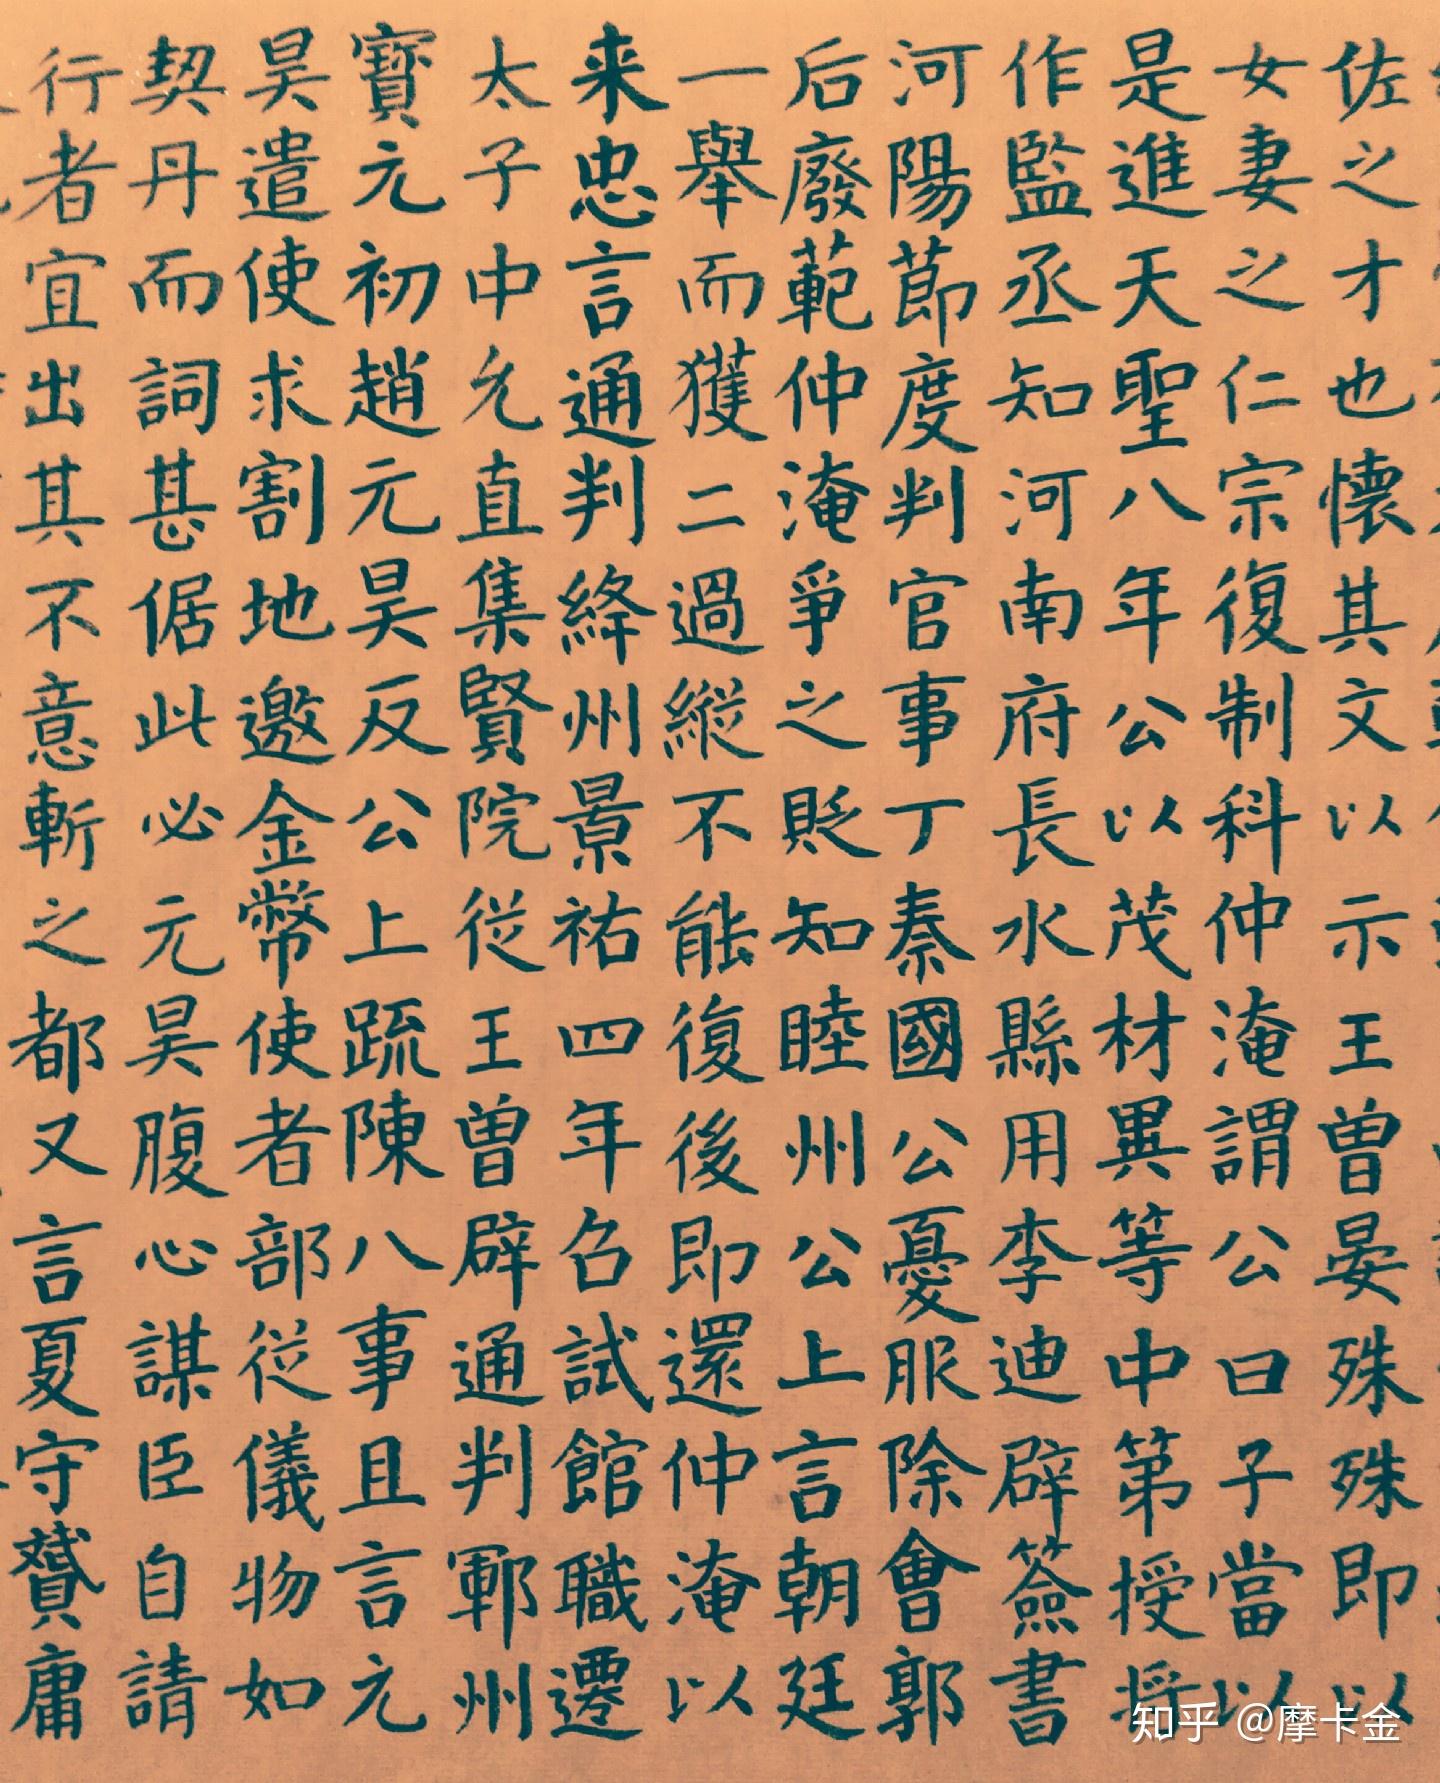 佐之才也懷其文以示王曾晏殊殊即以
女妻之仁宗復制科仲淹謂公曰子當以
是進天聖八年公以茂材異等中第授將
作監丞知河南府長水縣用李迪辟簽書
河陽節度判官事丁秦國公憂服除會郭
后廢範仲淹爭之貶知睦州公上言朝廷
一舉而獲二過縱不能復後即還仲淹以
来忠言通判絳州景祐四年召試館職遷
太子中允直集賢院從王曾辟通判鄆州
寶元初趙元昊反公上疏陳八事且言元
昊遣使求割地邀金幣使者部從儀物如
契丹而詞甚倨此必元昊腹心謀臣自請
行者宜出其不意斬之都又言夏守贇庸
知乎 @摩卡金